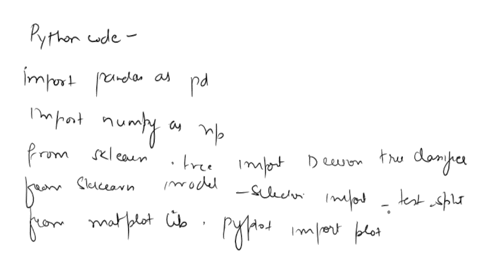 Python code -
import pandas as pd
import numpy as np
from sklearn . tree import Decision tree classifier
from sklearn model - selection import - test - split
from matplot lib . pyplot import plot